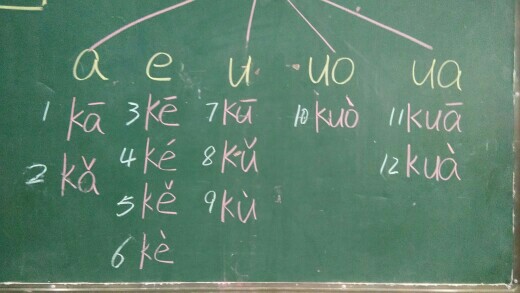 a e u uo ua
1 kā 3 kē 7 kū 10 kuò 11 kuā
2 kǎ 4 ké 8 kǔ 12 kuà
5 kě 9 kù
6 kè